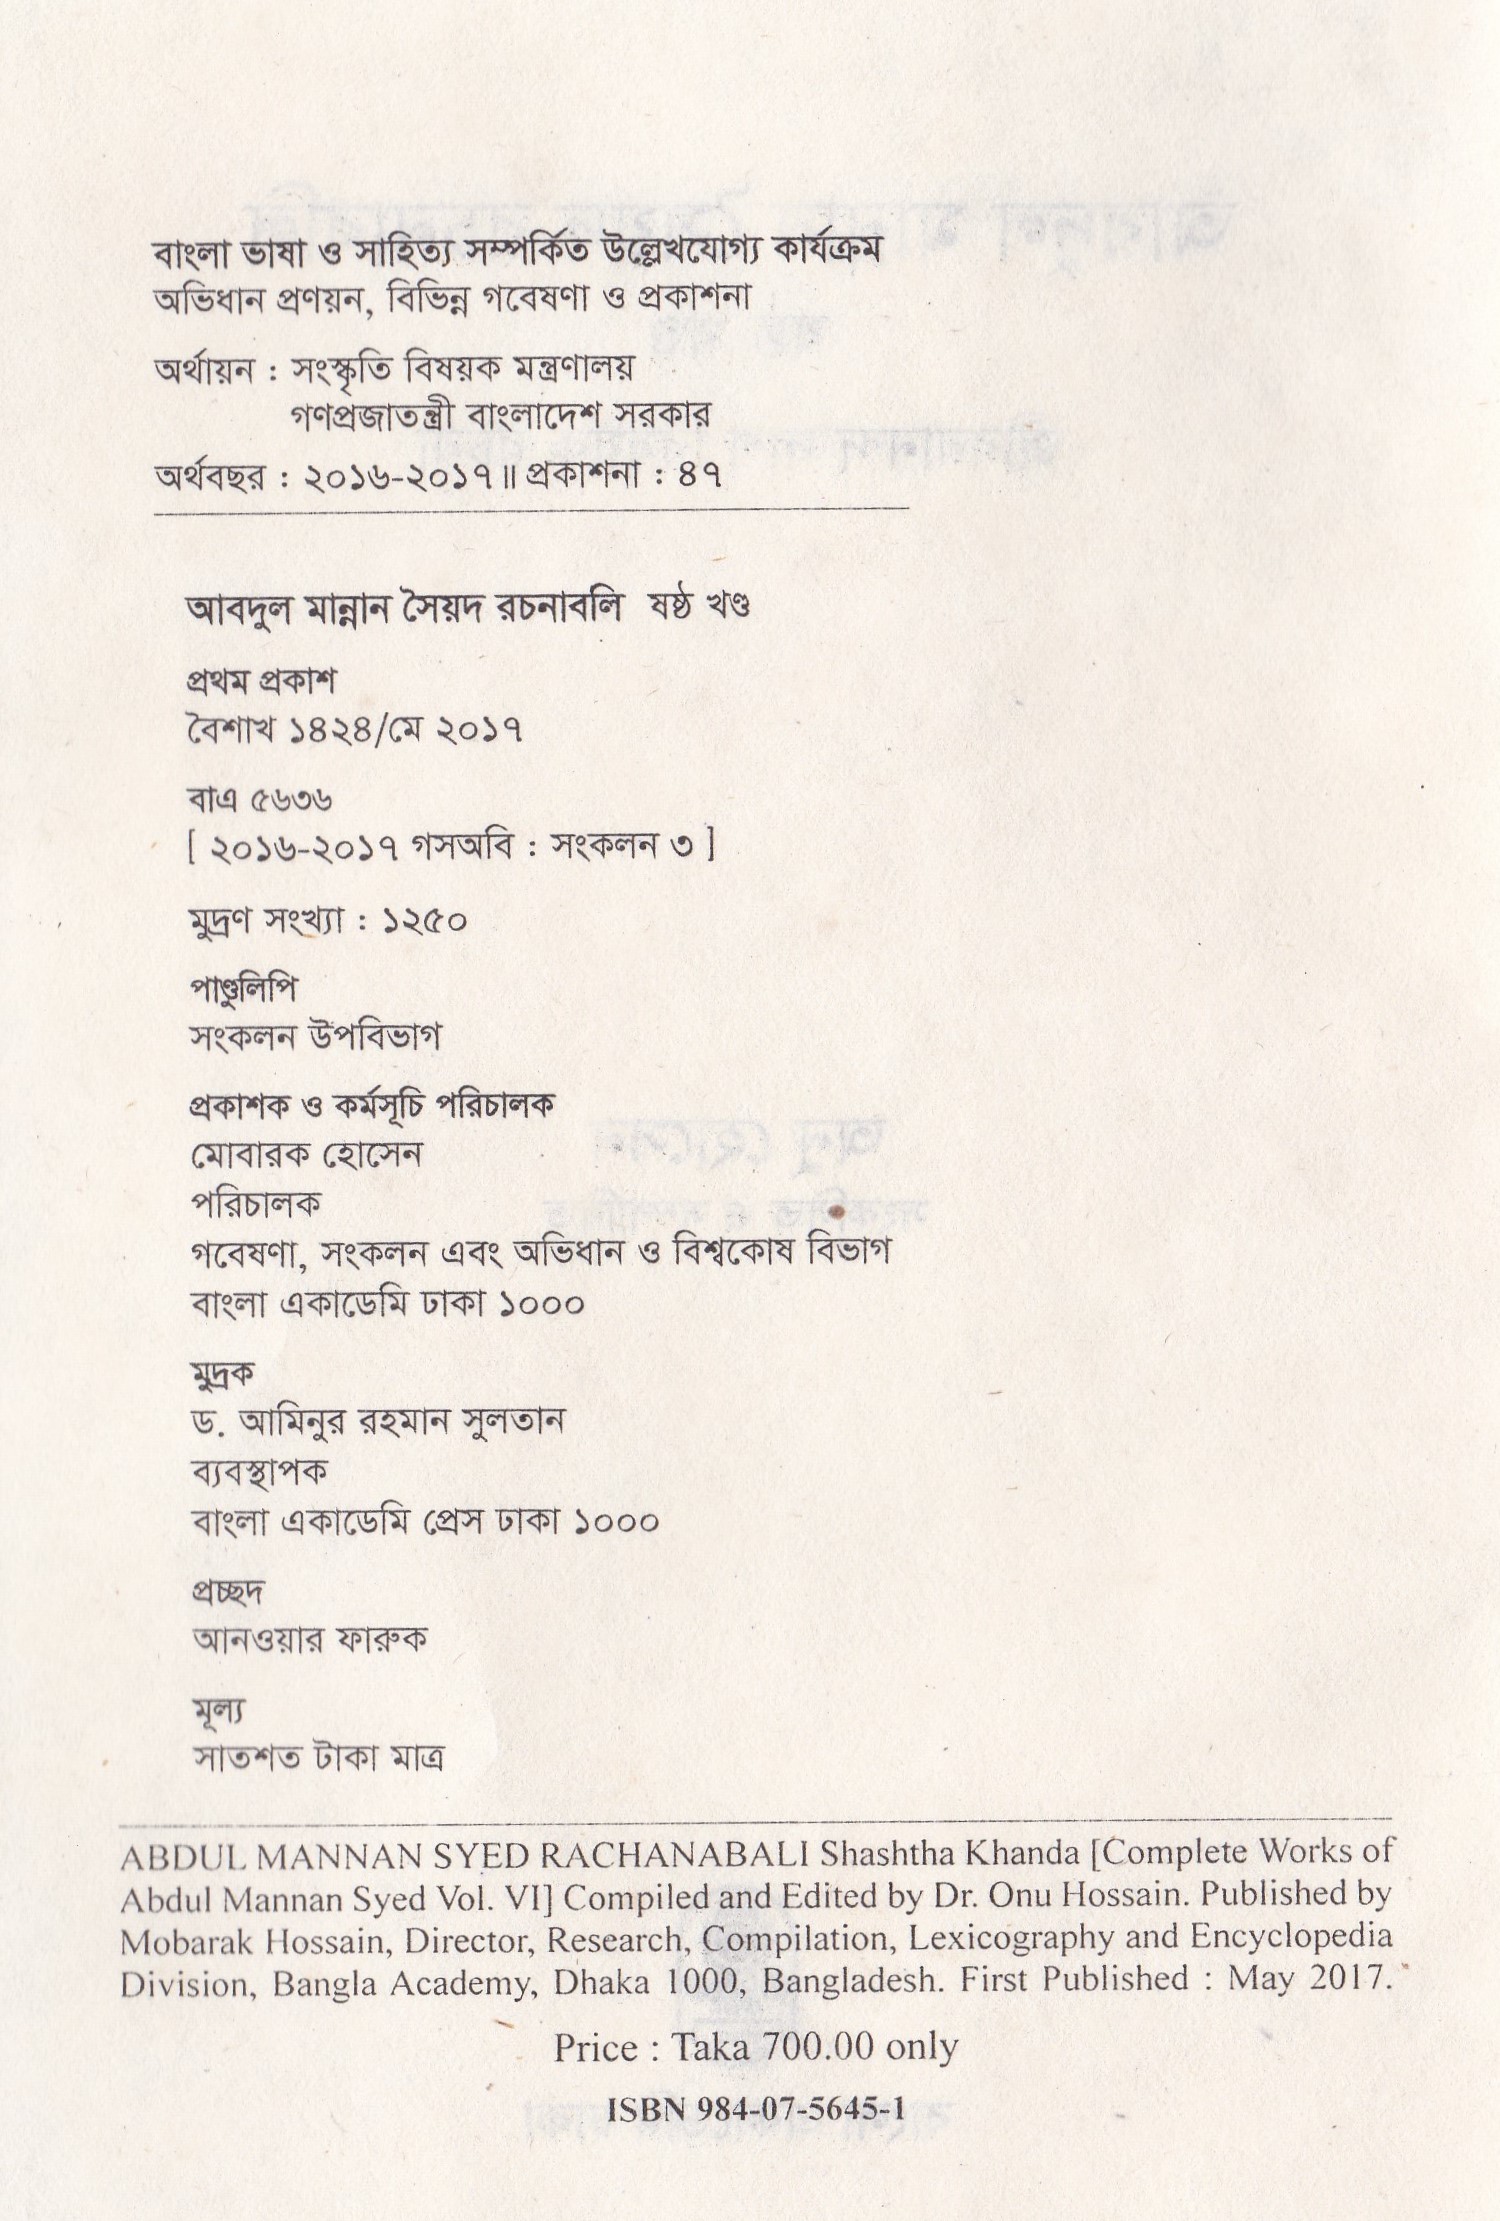 বাংলা ভাষা ও সাহিত্য সম্পর্কিত উল্লেখযোগ্য কার্যক্রম
অভিধান প্রণয়ন, বিভিন্ন গবেষণা ও প্রকাশনা
অর্থায়ন : সংস্কৃতি বিষয়ক মন্ত্রণালয়
গণপ্রজাতন্ত্রী বাংলাদেশ সরকার
অর্থবছর : ২০১৬-২০১৭॥ প্রকাশনা : ৪৭
আবদুল মান্নান সৈয়দ রচনাবলি ষষ্ঠ খণ্ড
প্রথম প্রকাশ
বৈশাখ ১৪২৪/মে ২০১৭
বাএ ৫৬৩৬
[ ২০১৬-২০১৭ গসঅবি : সংকলন ৩ ]
মুদ্রণ সংখ্যা : ১২৫০
পাণ্ডুলিপি
সংকলন উপবিভাগ
প্রকাশক ও কর্মসূচি পরিচালক
মোবারক হোসেন
পরিচালক
গবেষণা, সংকলন এবং অভিধান ও বিশ্বকোষ বিভাগ
বাংলা একাডেমি ঢাকা ১০০০
মুদ্রক
ড. আমিনুর রহমান সুলতান
ব্যবস্থাপক
বাংলা একাডেমি প্রেস ঢাকা ১০০০
প্রচ্ছদ
আনওয়ার ফারুক
মূল্য
সাতশত টাকা মাত্র
ABDUL MANNAN SYED RACHANABALI Shashtha Khanda [Complete Works of
Abdul Mannan Syed Vol. VI] Compiled and Edited by Dr. Onu Hossain. Published by
Mobarak Hossain, Director, Research, Compilation, Lexicography and Encyclopedia
Division, Bangla Academy, Dhaka 1000, Bangladesh. First Published : May 2017.
Price : Taka 700.00 only
ISBN 984-07-5645-1